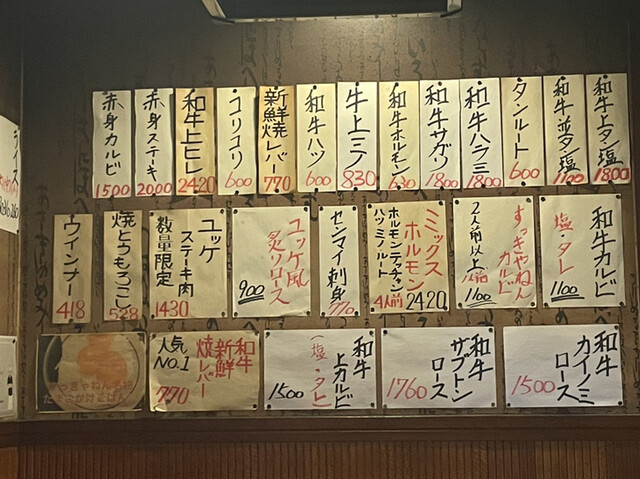 和牛上タン塩
1800
和牛並タン塩
1100
タンルート
600
和牛ハラミ
1800
和牛サガリ
1800
和牛ホルモン
630
牛上ミノ
830
和牛ハツ
600
新鮮焼レバー
770
コリコリ
600
和牛上ヒレ
2420
赤身ステーキ
2000
赤身カルビ
1500
ライス
和牛カルビ
塩・タレ
1100
すっきゃねん
カルビ
2人前以上
1人前
1100
ミックス
ホルモン
ホルモンテッチャン
ハツミノルート
4人前
2420
センマイ刺身
770
ユッケ風
炙りロース
900
ユッケ
ステーキ肉
数量限定
1430
焼とうもろこし
528
ウインナー
418
和牛
カイノミ
ロース
1500
和牛
ザブトン
ロース
1760
和牛
上カルビ
(塩・タレ)
1500
和牛
新鮮
焼レバー
人気
NO.1
770
すっきゃねん名物
たまごかけごはん